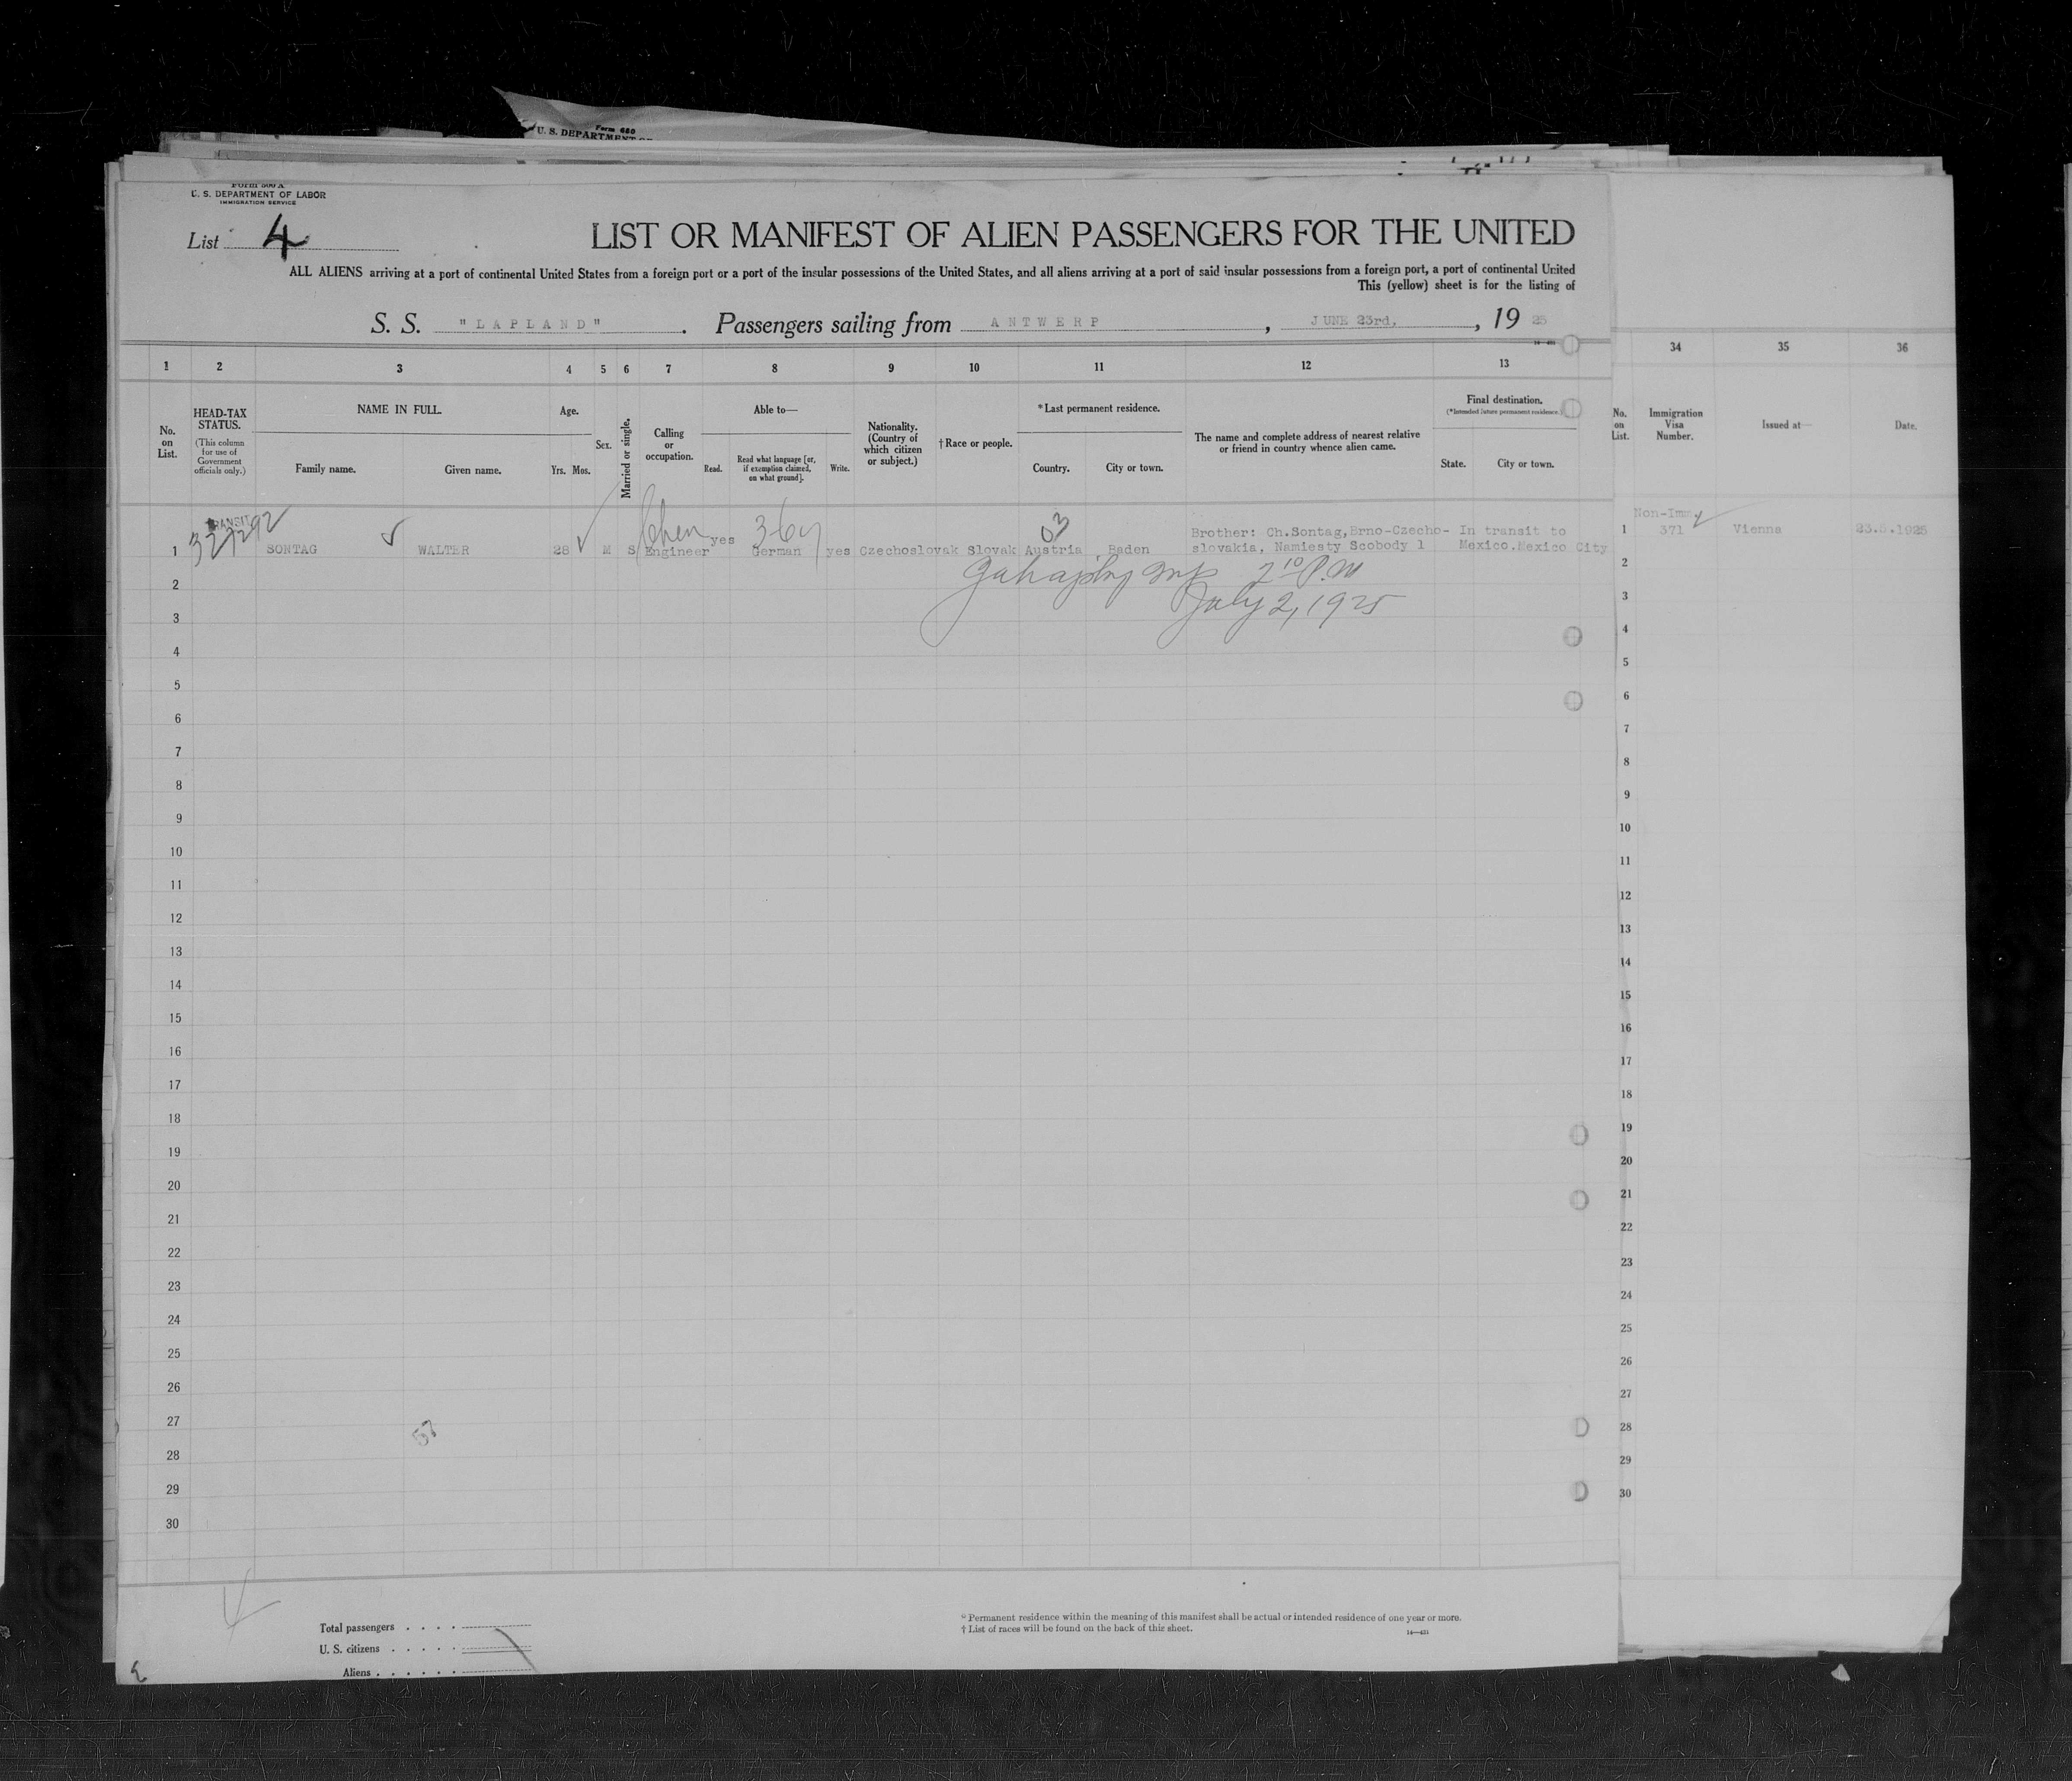 Form 680
U. S. DEPARTMENT OF
Form 500 A
U. S. DEPARTMENT OF LABOR
IMMIGRATION SERVICE
List 4
LIST OR MANIFEST OF ALIEN PASSENGERS FOR THE UNITED
ALL ALIENS arriving at a port of continental United States from a foreign port or a port of the insular possessions of the United States, and all aliens arriving at a port of said insular possessions from a foreign port, a port of continental United
This (yellow) sheet is for the listing of
S. S. "LAPLAND". Passengers sailing from ANTWERP, JUNE 23rd, 19 25
1 2 3 4 5 6 7 8 9 10 11 12 13 34 35 36
No. on List.
HEAD-TAX STATUS.
(This column for use of Government officials only.)
NAME IN FULL.
Family name. Given name.
Age.
Yrs. Mos.
Sex.
Married or single.
Calling or occupation.
Able to—
Read.
Read what language [or, if exemption claimed, on what ground].
Write.
Nationality. (Country of which citizen or subject.)
†Race or people.
*Last permanent residence.
Country. City or town.
The name and complete address of nearest relative or friend in country whence alien came.
Final destination.
(*Intended future permanent residence.)
State. City or town.
No. on List.
Immigration Visa Number.
Issued at—
Date.
TRANSIT
1 SONTAG WALTER 28 M S Engineer yes German yes Czechoslovak Slovak Austria, Baden
Chem 364 03
Brother: Ch.Sontag,Brno-Czecho-
slovakia, Namiesty Scobody 1
In transit to
Mexico.Mexico City
Non-Imm
1 371 Vienna 23.5.1925
2 10 P.M
July 2, 1925
2
3
4
5
6
7
8
9
10
11
12
13
14
15
16
17
18
19
20
21
22
23
24
25
26
27
28
29
30
2
3
4
5
6
7
8
9
10
11
12
13
14
15
16
17
18
19
20
21
22
23
24
25
26
27
28
29
30
57
Total passengers
U. S. citizens
Aliens
* Permanent residence within the meaning of this manifest shall be actual or intended residence of one year or more.
† List of races will be found on the back of this sheet.
14—431